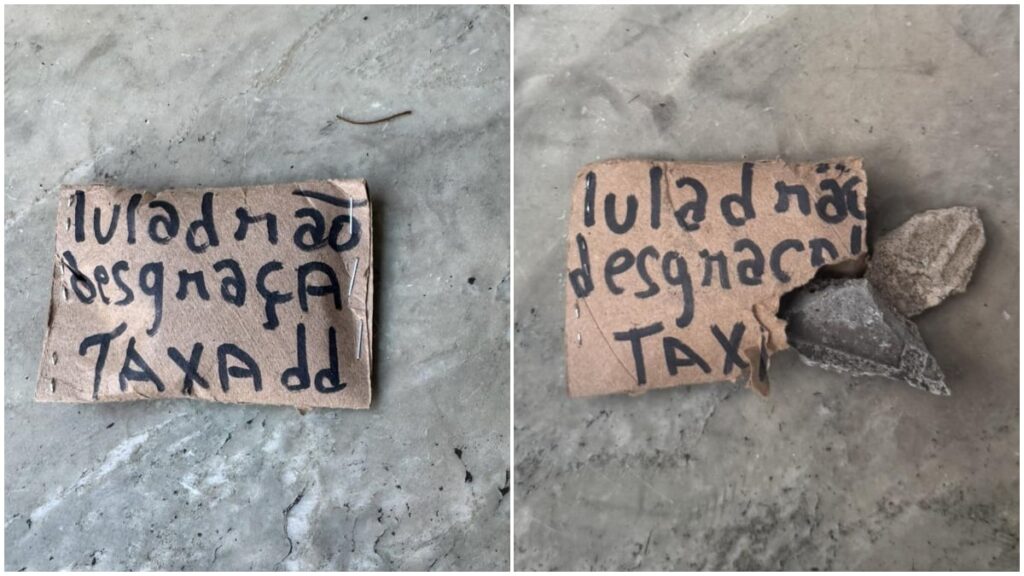 luladrrão
desgraçA
TAXA dd
luladrrão
desgraça
TAX